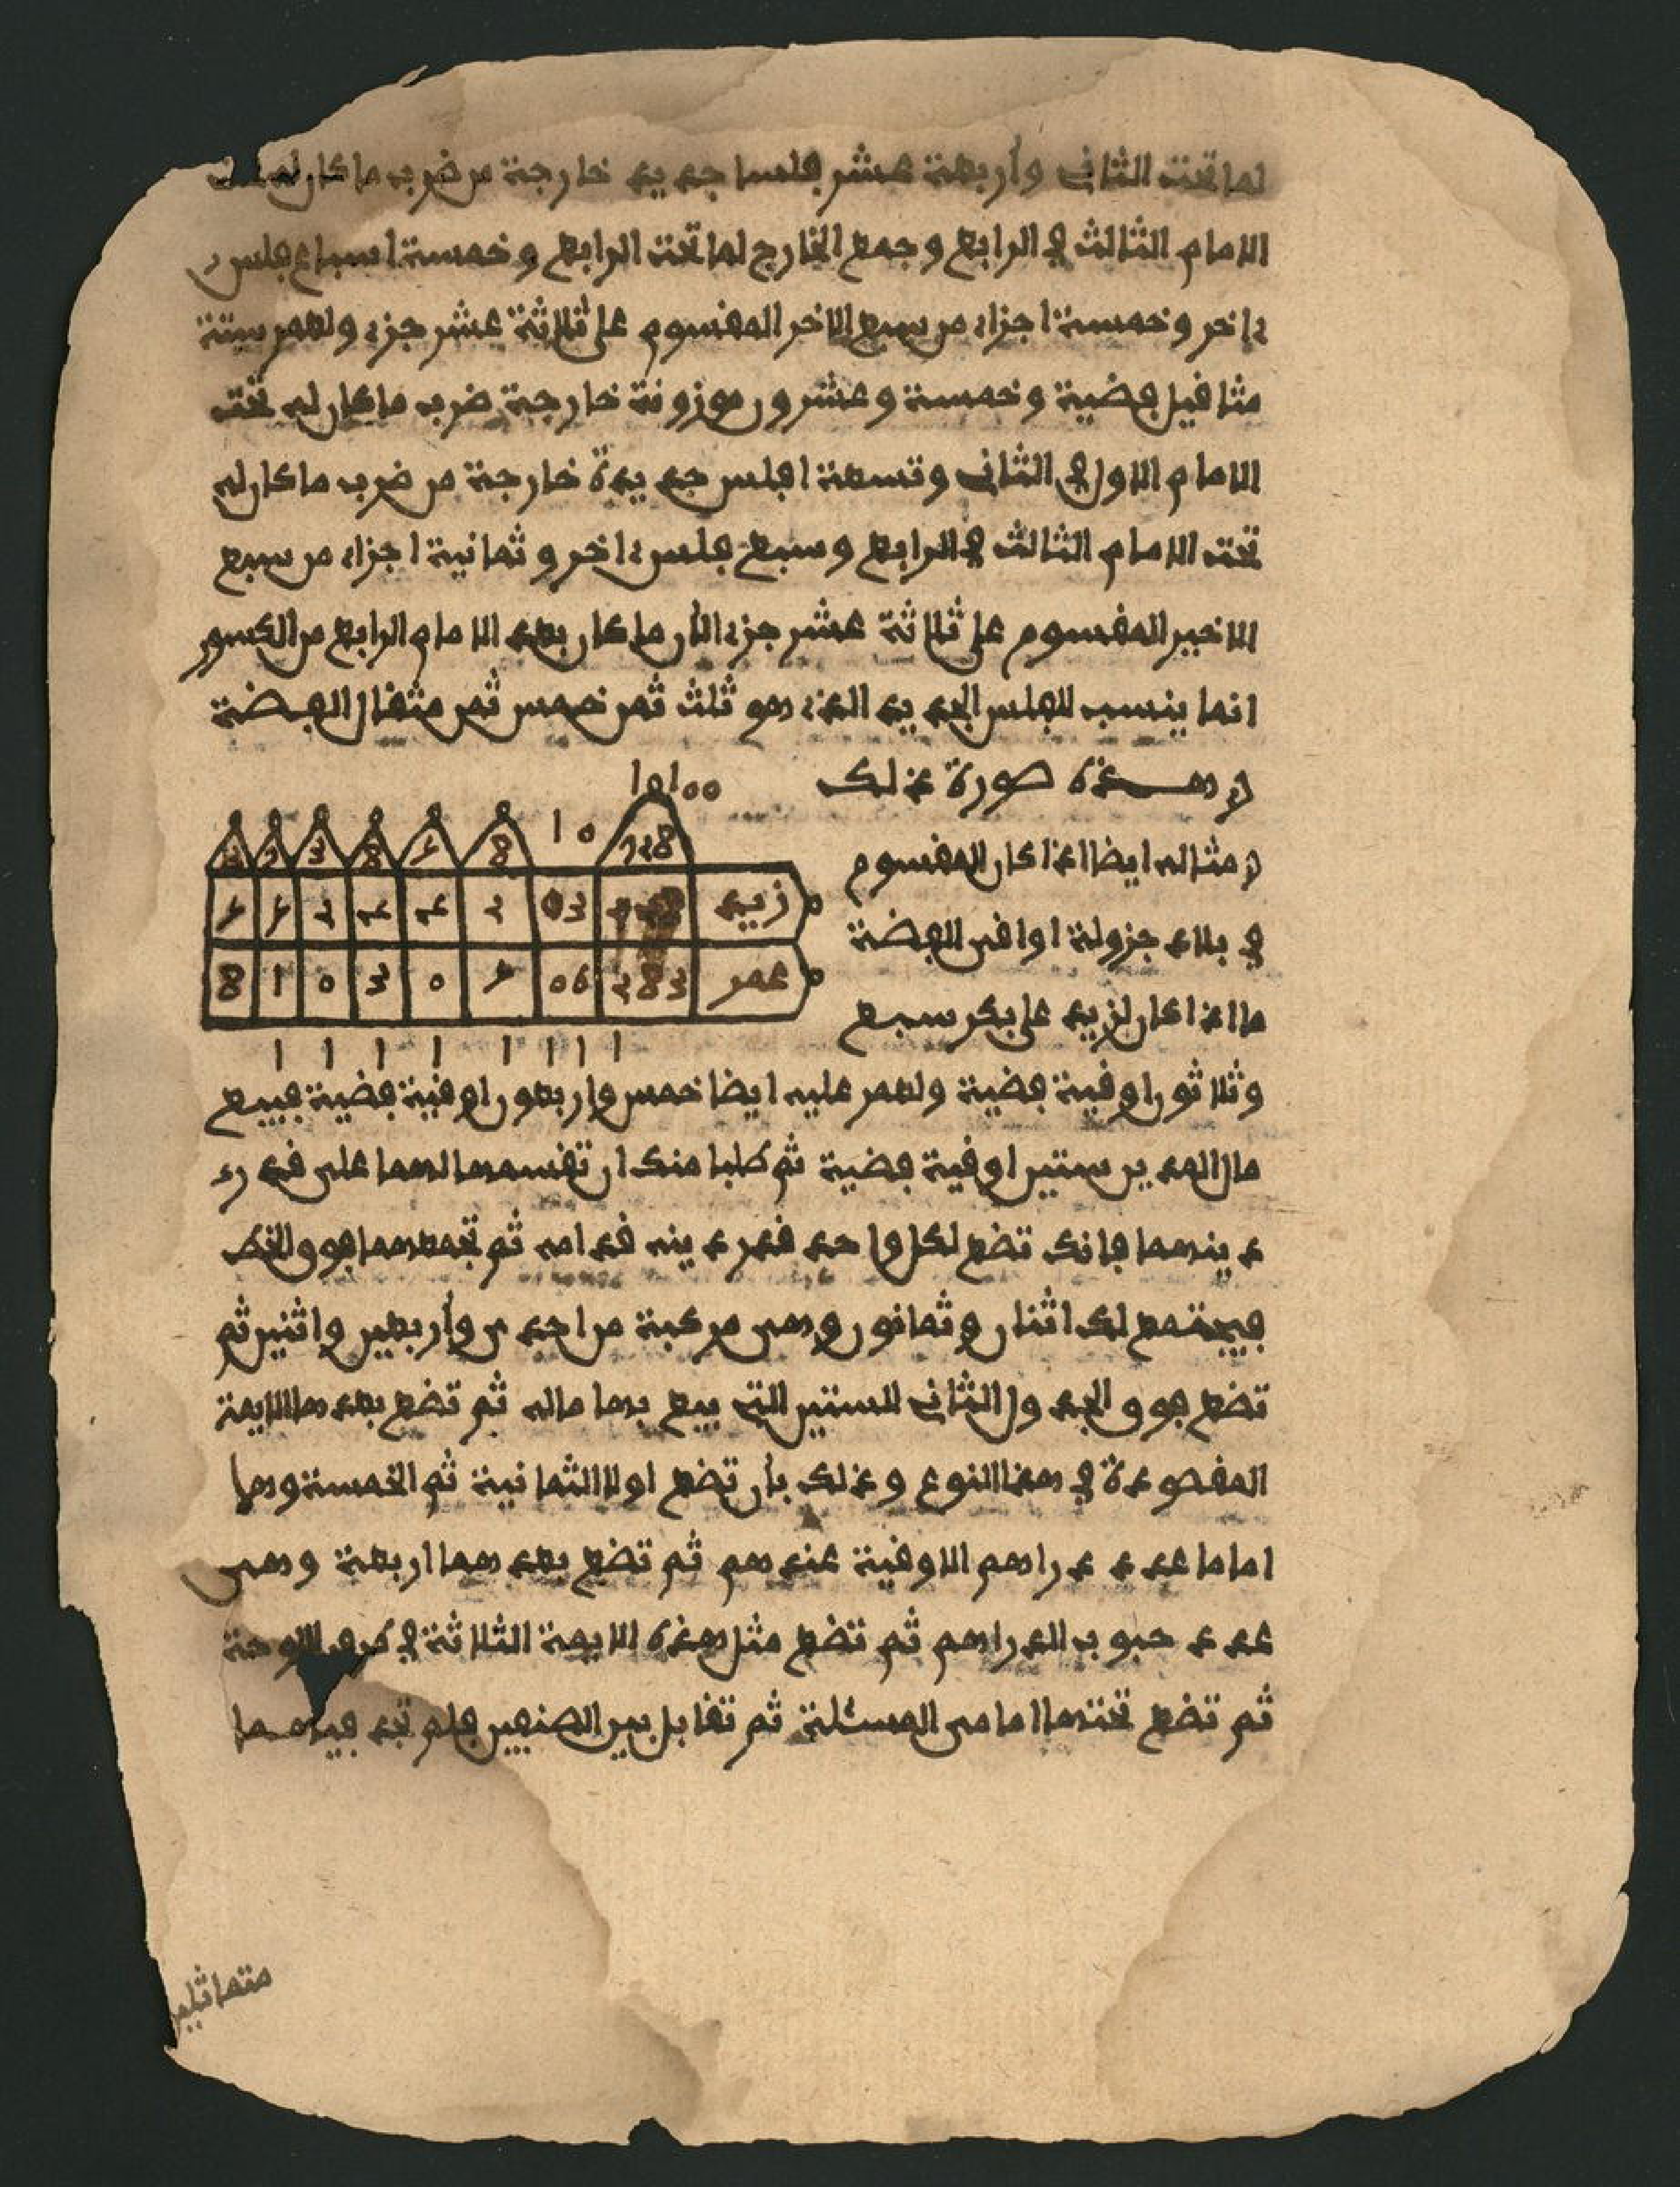 لما تحت الثاني وأربعة عشر فلسا جديد خارجة من ضرب ما كان له تحت
الامام الثالث في الرابع وجمع الخارج لما تحت الرابع وخمسة اسباع فلس
ءاخر وخمسة اجزاء من سبع الاخر المقسوم على ثلاثة عشر جزء ولعمر ستة
مثاقيل فضية وخمسة وعشرون موزونة خارجة ضرب ما كان له تحت
الامام الاول في الثاني وتسعة افلس جديدة خارجة من ضرب ما كان له
تحت الامام الثالث في الرابع وسبع فلس ءاخر وثمانية اجزاء من سبع
الاخير المقسوم على ثلاثة عشر جزء لأن ما كان بعد الامام الرابع من الكسور
انما ينسب للفلس الجديد الذي هو ثلث ثمن خمس ثمن مثقال الفضة
وهذه صورة ذلك
ومثاله ايضا اذا كان المقسوم
في بلاد جزولة اواقي الفضة
ما اذا كان لزيد على بكر سبع
زيد
عمر
وثلاثون اوقية فضية ولعمر عليه ايضا خمس واربعون اوقية فضية فبيع
مال المدين بستين اوقية فضية ثم طلبا منك ان تقسمها لهما على قدر
دينهما فانك تضع لكل واحد قدر دينه قدامه ثم تجمعهما فوق الخط
فيجتمع لك اثنان وثمانون وهي مركبة من احد وأربعين واثنين ثم
تضع فوق الجدول الثاني للستين التي بيع بها ماله ثم تضع بعدها الايمة
المقصودة في هذا النوع وذلك بأن تضع اولا الثمانية ثم الخمسة وهما
اماما عدد دراهم الاوقية عندهم ثم تضع بعدهما اربعة وهي
عدد حبوب الدراهم ثم تضع مثل هذه الايمة الثلاثة في طرف اللوحة
ثم تضع تحتها امامي المسئلة ثم تقابل بين الصنفين فلم تجد فيهما
متماثلين